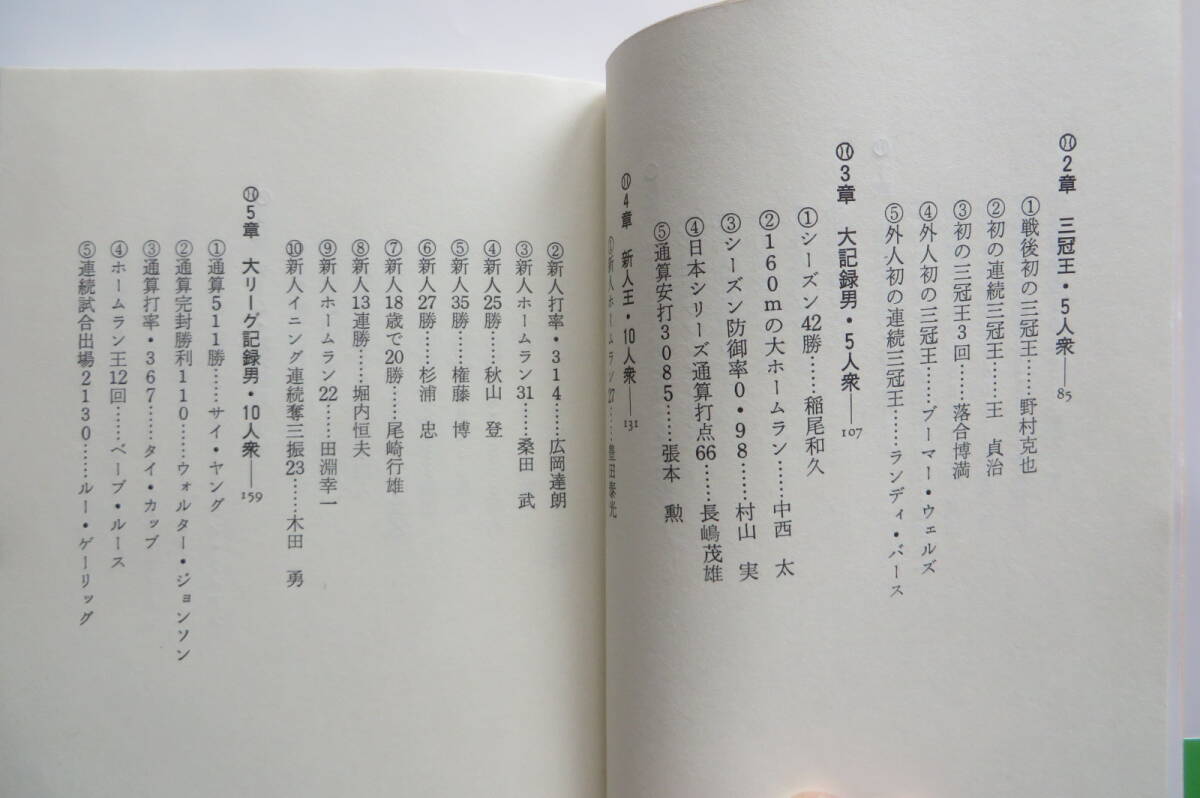 2章 三冠王・5人衆──85
①戦後初の三冠王……野村克也
②初の連続三冠王……王 貞治
③初の三冠王3回……落合博満
④外人初の三冠王……ブーマー・ウェルズ
⑤外人初の連続三冠王……ランディ・バース
3章 大記録男・5人衆──107
①シーズン42勝……稲尾和久
②160mの大ホームラン……中西 太
③シーズン防御率0・98……村山 実
④日本シリーズ通算打点66……長嶋茂雄
⑤通算安打3085……張本 勲
4章 新人王・10人衆──131
①新人ホームラン27……豊田泰光
②新人打率・314……広岡達朗
③新人ホームラン31……桑田 武
④新人25勝……秋山 登
⑤新人35勝……権藤 博
⑥新人27勝……杉浦 忠
⑦新人18歳で20勝……尾崎行雄
⑧新人13連勝……堀内恒夫
⑨新人ホームラン22……田淵幸一
⑩新人イニング連続奪三振23……木田 勇
5章 大リーグ記録男・10人衆──159
①通算511勝……サイ・ヤング
②通算完封勝利110……ウォルター・ジョンソン
③通算打率・367……タイ・カッブ
④ホームラン王12回……ベーブ・ルース
⑤連続試合出場2130……ルー・ゲーリッグ